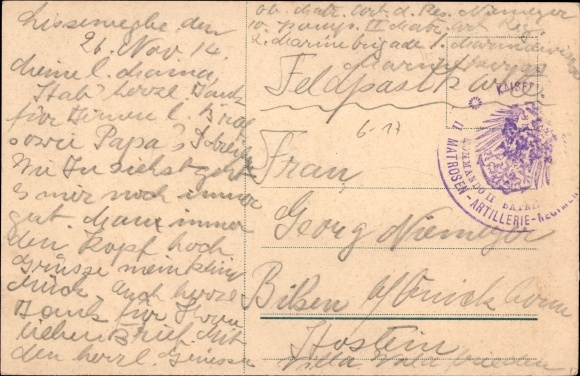 Lisseweghe, den
26. Nov. 14.
Meine l. Mama,
Hab' herzl. Dank
für Deinen l. Brief
sowie Papa's Schreiben
Wie Du siehst geht
es mir noch immer
gut. Man immer
den Kopf hoch
Grüsse mein klein
auch herzl
Dank für
lieben Brief Mit
den herzl. Grüssen
Ob. Matr. Art. d. Res. Niemeyer
10. Komp. II Matr. Art. Reg.
2. Marinebrigade 1. Marinedivision
Marinekorps
Feldpostkarte
6.17
KAISERL
II MATROSEN-ARTILLERIE-REGIMENT
KOMMANDO II
Frau
Georg Niemeyer
Bilsen b/Quickborn
Holstein
Villa